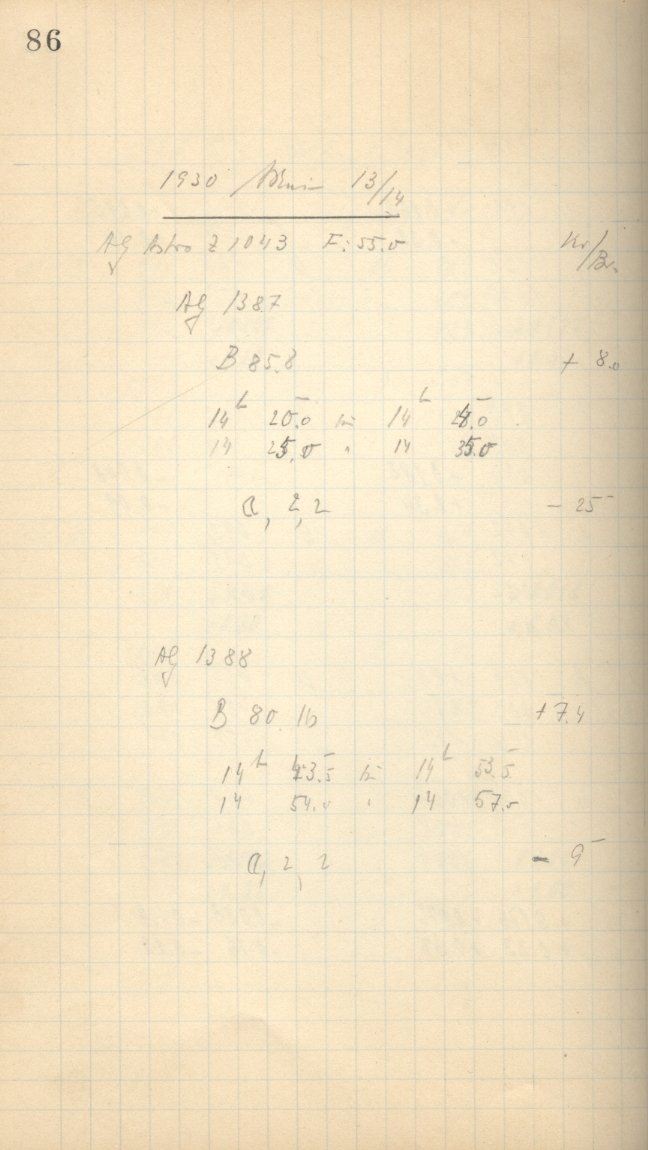 86
1930 13/14
AG Astro Z 1043 F: 55.0 Kr/Br.
AG 1387
B 85.8 + 8.0
14h 20.0 bis 14h
14 25.0 " 14 35.0
a, 2, 2 - 25
AG 1388
B 80 16 +7.4
14h 43.5 bis 14h 53.5
14 54.0 " 14 57.0
a, 2, 2 - 9